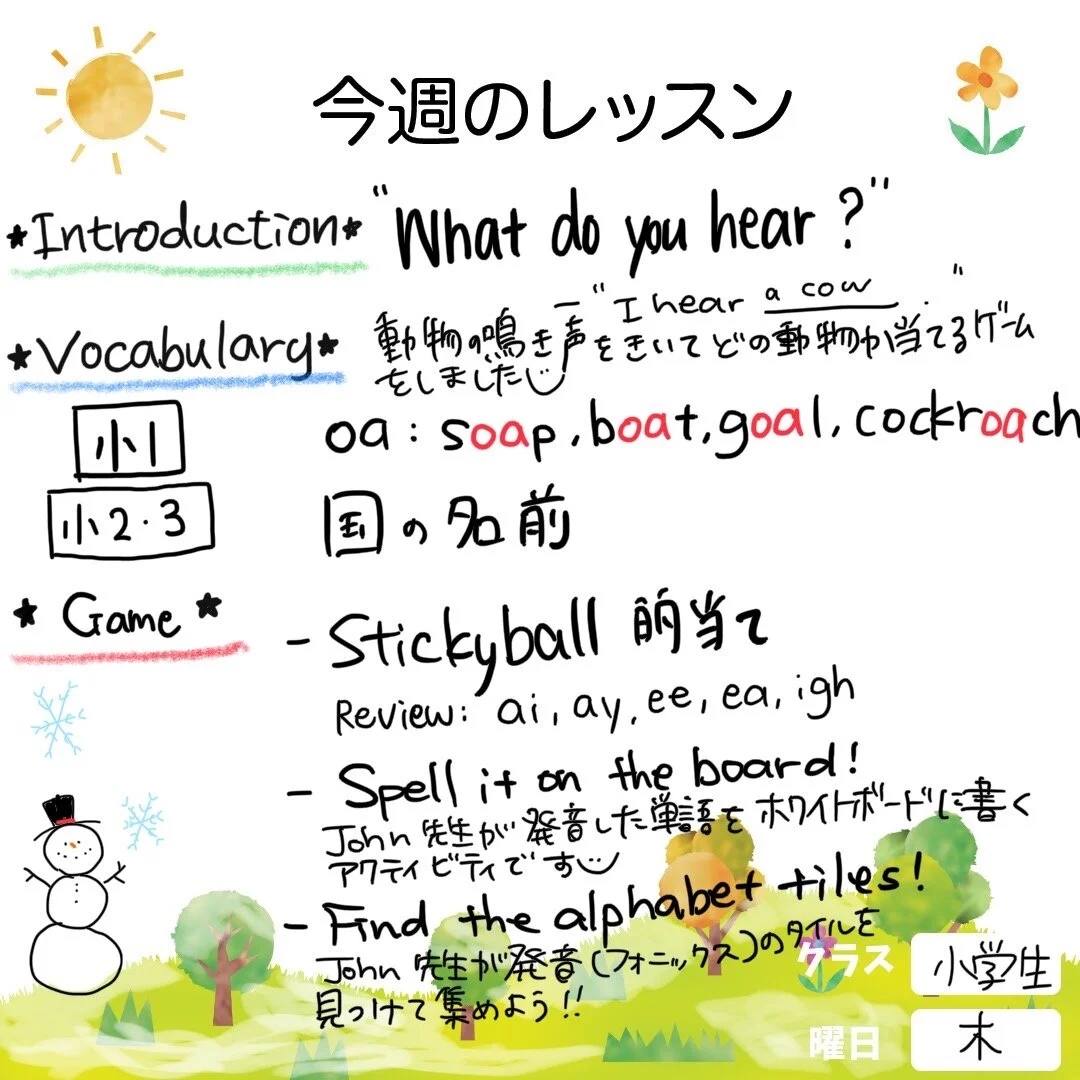 今週のレッスン
★Introduction★ "What do you hear?"
- "I hear a cow."
★Vocabulary★ 動物の鳴き声をきいてどの動物か当てるゲーム
をしました
小1 oa : soap, boat, goal, cockroach
小2・3 国の名前
★ Game ★ - Stickyball 的当て
Review: ai, ay, ee, ea, igh
- Spell it on the board!
John 先生が発音した単語をホワイトボードに書く
アクティビティです
- Find the alphabet tiles!
John 先生が発音(フォニックス)のタイルを
見つけて集めよう!!
クラス 小学生
曜日 木